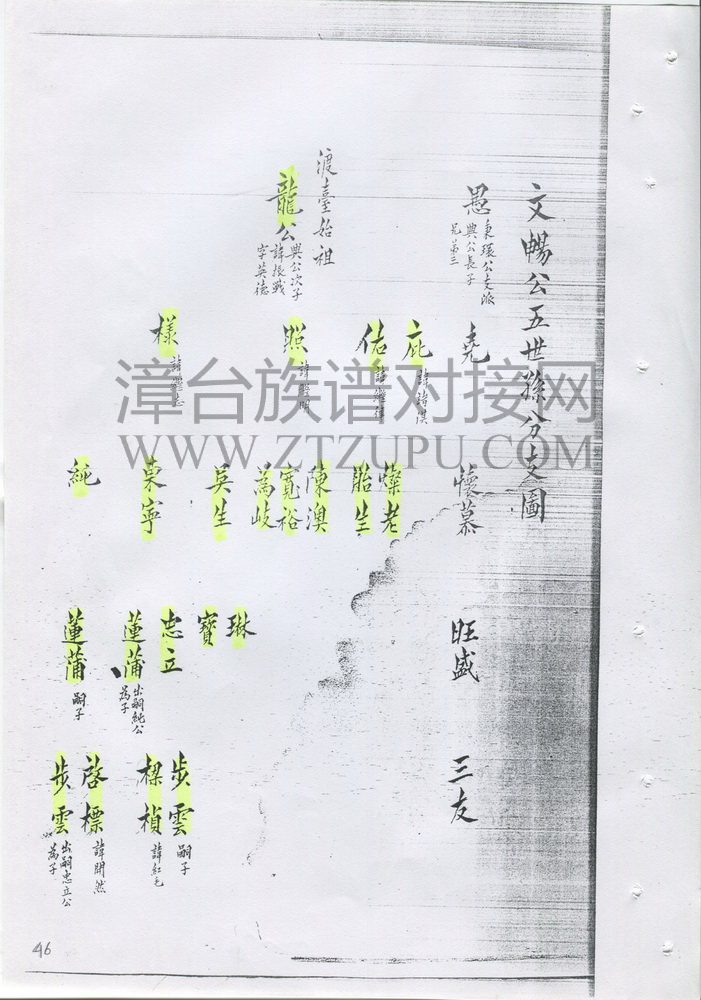 文暢公五世孫分支圖
愚
秉環公支派
興公長子
兄弟三
渡臺始祖
龍公
興公次子
諱振戰
字英德
堯
庇
佑
照
樣
懷慕
燦老
胎生
陳澳
寬裕
為岐
英生
東寧
純
旺盛
琳
寶
忠立
蓮蒲
出嗣純公
為子
蓮蒲
嗣子
三友
步雲
嗣子
樑楨
諱紅毛
啓標
諱開然
步雲
出嗣忠立公
為子
46
漳台族谱对接网
WWW.ZTZUPU.COM